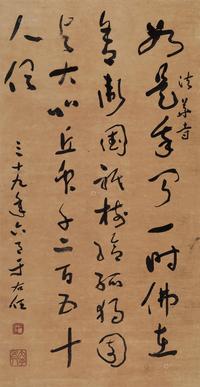 如是我聞一時佛在
舍衛國祇樹給孤獨園
與大比丘眾千二百五十
人俱
三十九年六月于右任